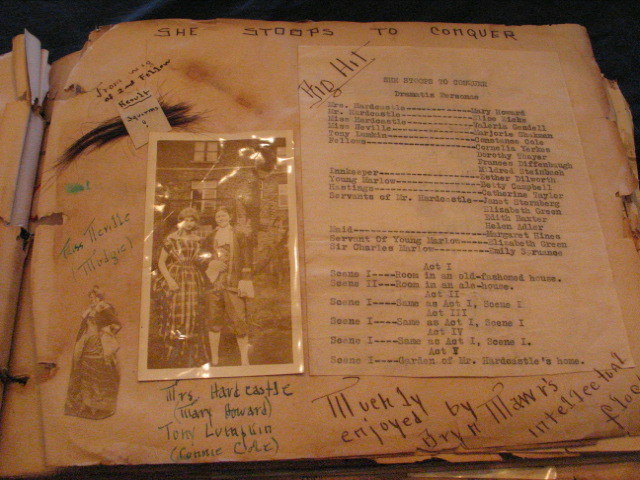 SHE STOOPS TO CONQUER
From wig
of 2nd Fellow
Big Hit
SHE STOOPS TO CONQUER
Dramatis Personae
Mrs. Hardcastle----Mary Howard
Mr. Hardcastle----
Miss Hardcastle----Valeria Gendell
Miss Neville----Marjorie
Tony Lumkin----Constance Cole
Fellows----Cornelia Yerkes
Dorothy Thayer
Frances Diffenbaugh
Innkeeper----Mildred Steinbach
Young Marlow----Esther Dilworth
Hastings----Betty Campbell
Catharine Taylor
Servants of Mr. Hardcastle--Janet Sternberg
Elizabeth Green
Edith Baxter
Helen Adler
Maid----Margaret Hines
Servant of Young Marlow----Elizabeth Green
Sir Charles Marlow----Emily Spruance
Act I
Scene I----Room in an old-fashioned house.
Scene II----Room in an ale-house.
Act II
Scene I----Same as Act I, Scene I
Act III
Scene I----Same as Act I, Scene I
Act IV
Scene I----Same as Act I, Scene I.
Act V
Scene I----Garden of Mr. Hardcastle's home.
Miss Neville
(Mudgie)
Mrs Hardcastle
(Mary Howard)
Tony Lumpkin
(Connie Cole)
Muchly
enjoyed by
Bryn Mawr's
intellectual